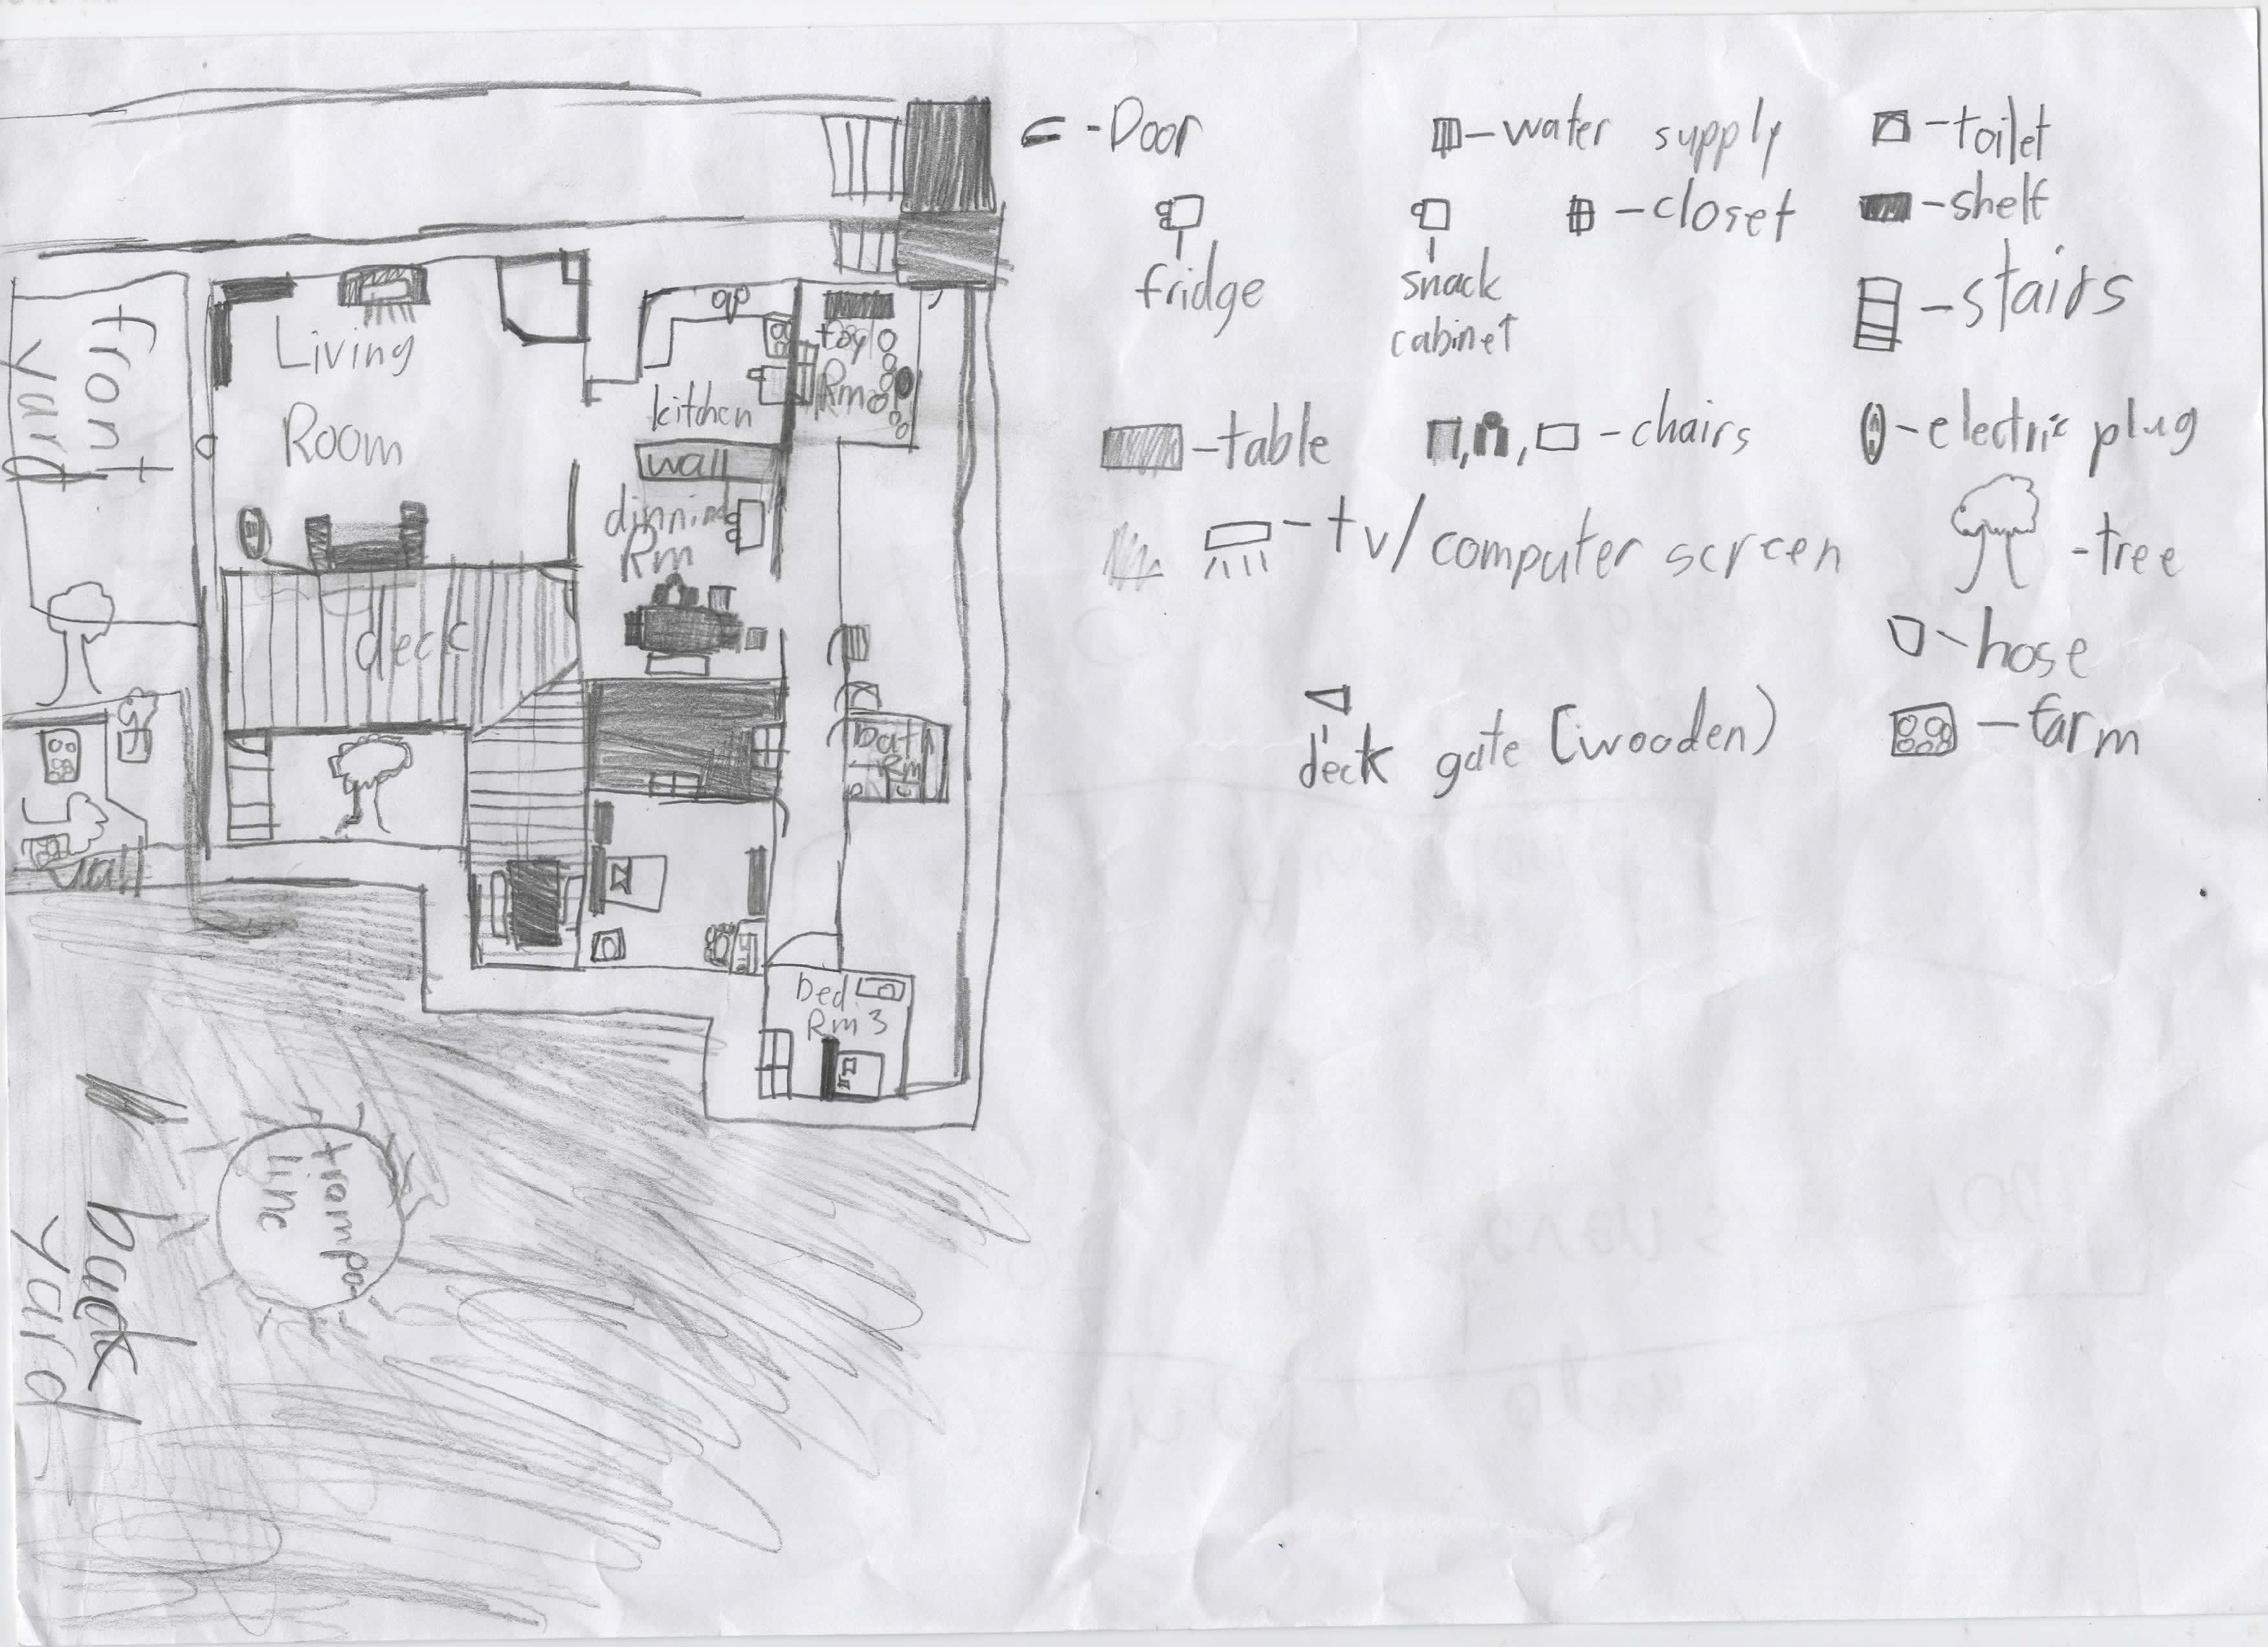 front
yard
Living
Room
kitchen
toy
Rm
wall
dinning
Rm
deck
bath
Rm
wall
bed
Rm 3
trampo-
line
back
yard
-Door
-water supply
-toilet
fridge
snack
cabinet
-closet
-shelf
-stairs
-table
-chairs
-electric plug
-tv/computer screen
-tree
-hose
deck gate (wooden)
-farm